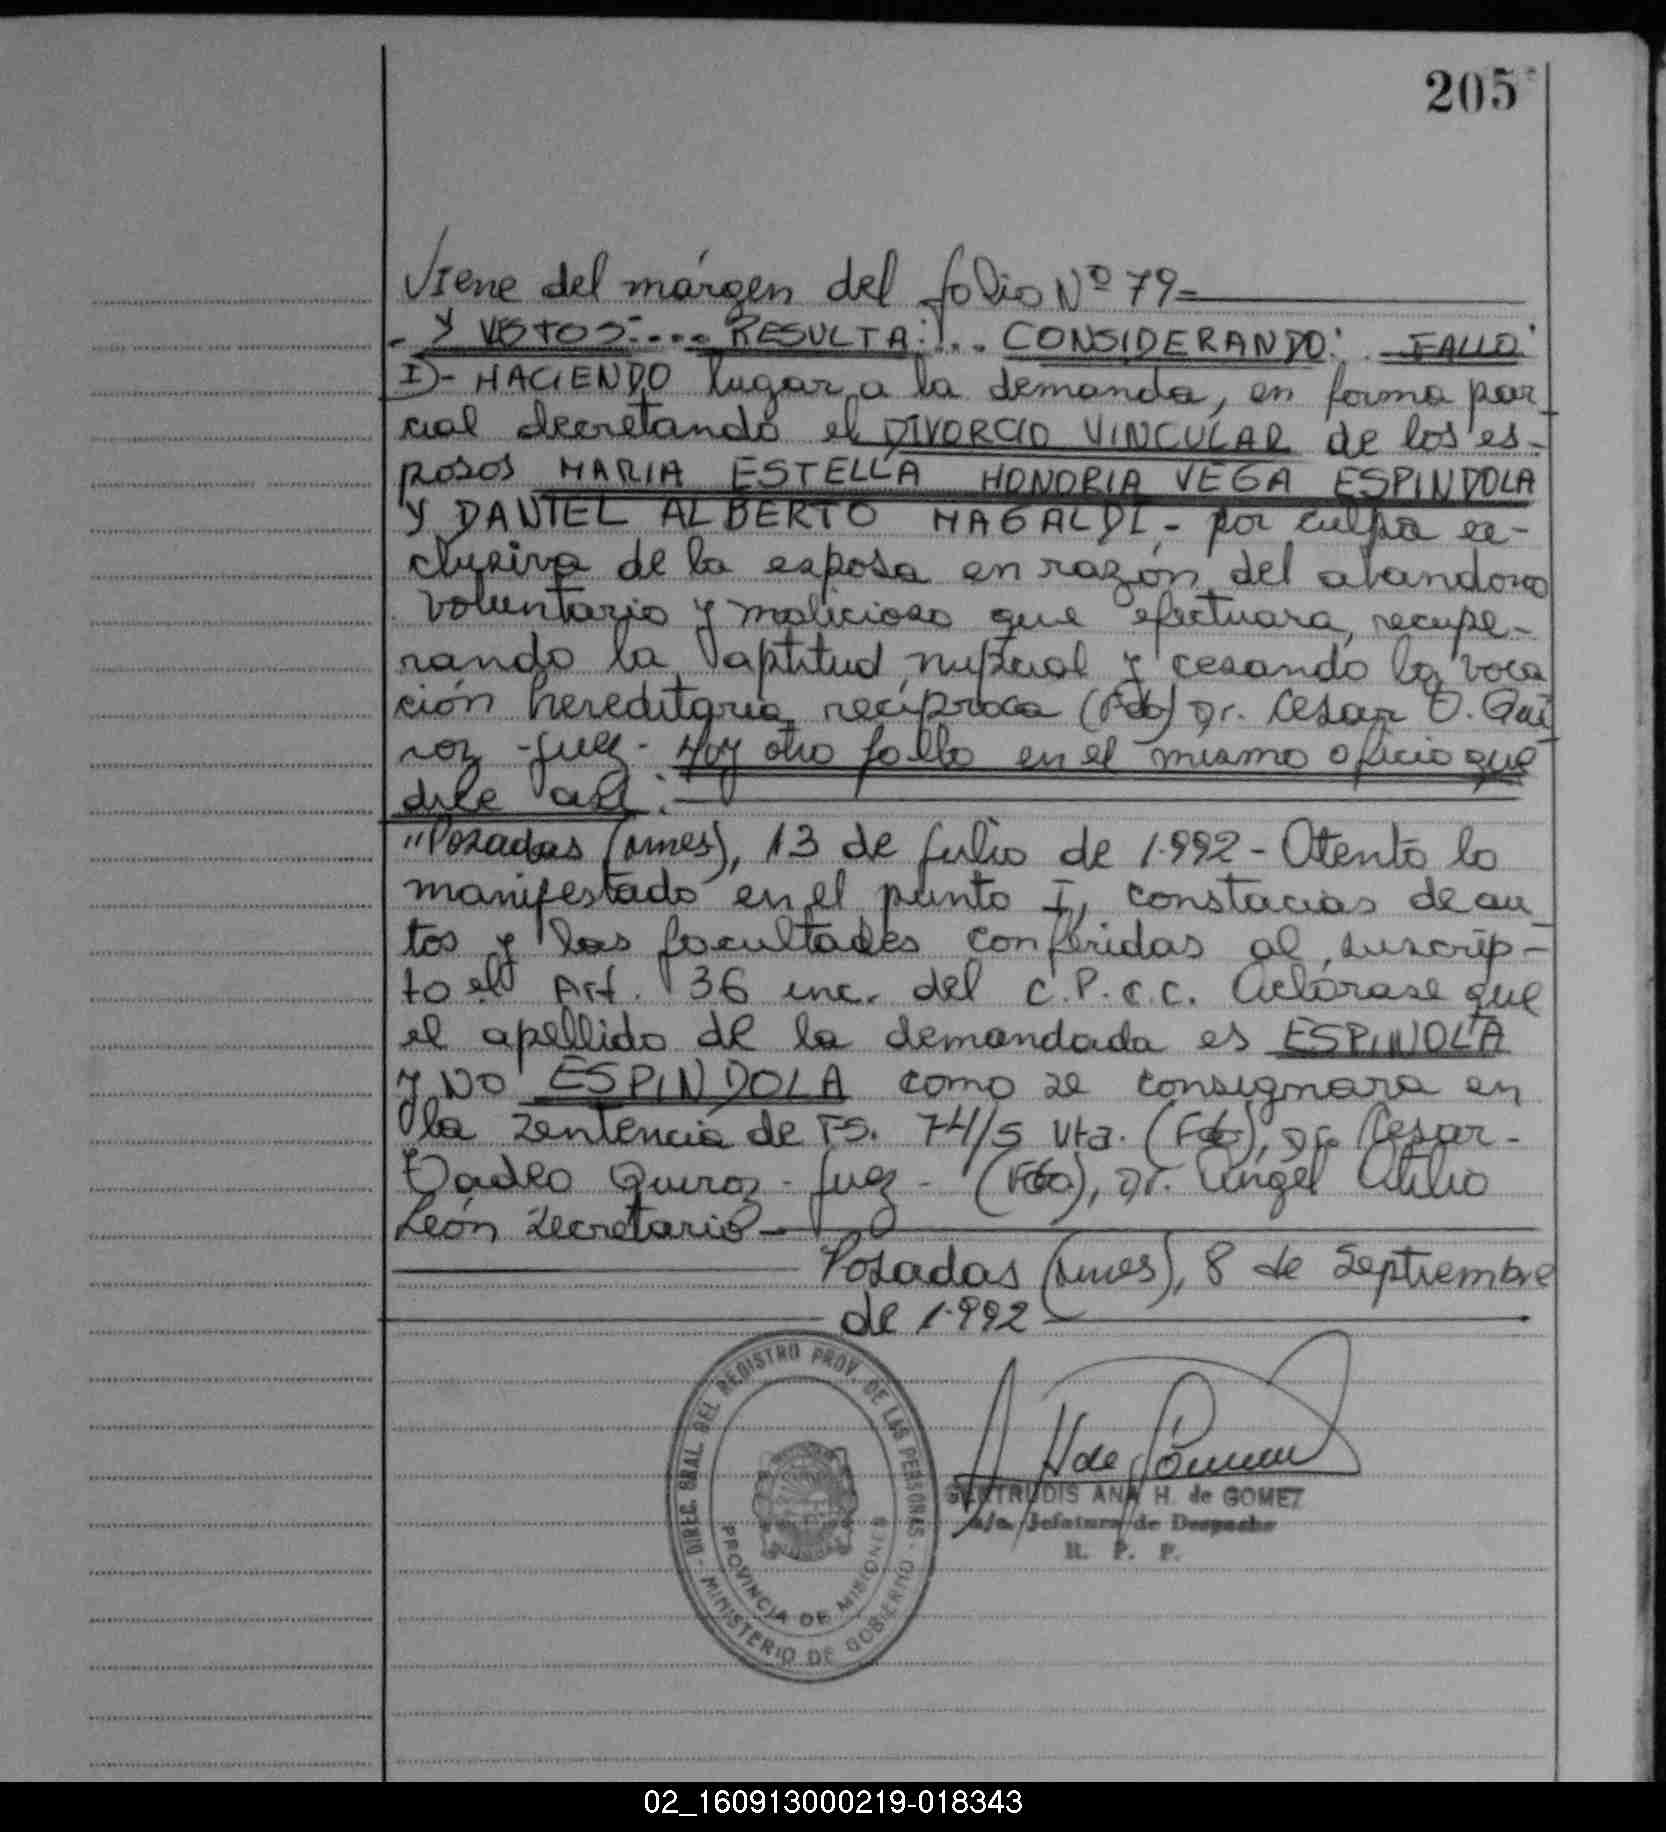 205
Viene del márgen del folio Nº 79=
- Y VISTOS:... RESULTA:... CONSIDERANDO: FALLO:
I)- HACIENDO lugar a la demanda, en forma par_
cial decretando el DIVORCIO VINCULAR de los es-
posos MARIA ESTELLA HONORIA VEGA ESPINDOLA
Y DANIEL ALBERTO MAGALDI,- por culpa ex-
clusiva de la esposa en razón del abandono
voluntario y malicioso que efectuara, recupe-
rando la aptitud nupcial y cesando la voca
ción hereditaria recíproca (Fdo) Dr. Cesar O. Qui
roz - Juez - Hay otro fallo en el mismo oficio que
dice así:
"Posadas (Mnes), 13 de Julio de 1.992 - Atento lo
manifestado en el punto I, constacias de au_
tos y las facultades conferidas al suscrip-
to el Art. 36 inc. del C.P.C.C. Aclárase que
el apellido de la demandada es ESPINOLA
y NO ESPINDOLA como se consignara en
la sentencia de FS. 74/5 vta. (Fdo), Dr. Cesar-
Tadeo Quiroz - Juez - (Fdo), Dr. Angel Atilio
León Secretario -
Posadas (Mnes), 8 de Septiembre
de 1.992
DIREC. GRAL. DEL REGISTRO PROV. DE LAS PERSONAS
- MINISTERIO DE GOBIERNO -
PROVINCIA DE MISIONES
H de Gomez
GERTRUDIS ANA H. de GOMEZ
a/c. Jefatura de Despacho
R. P. P.
02_160913000219-018343